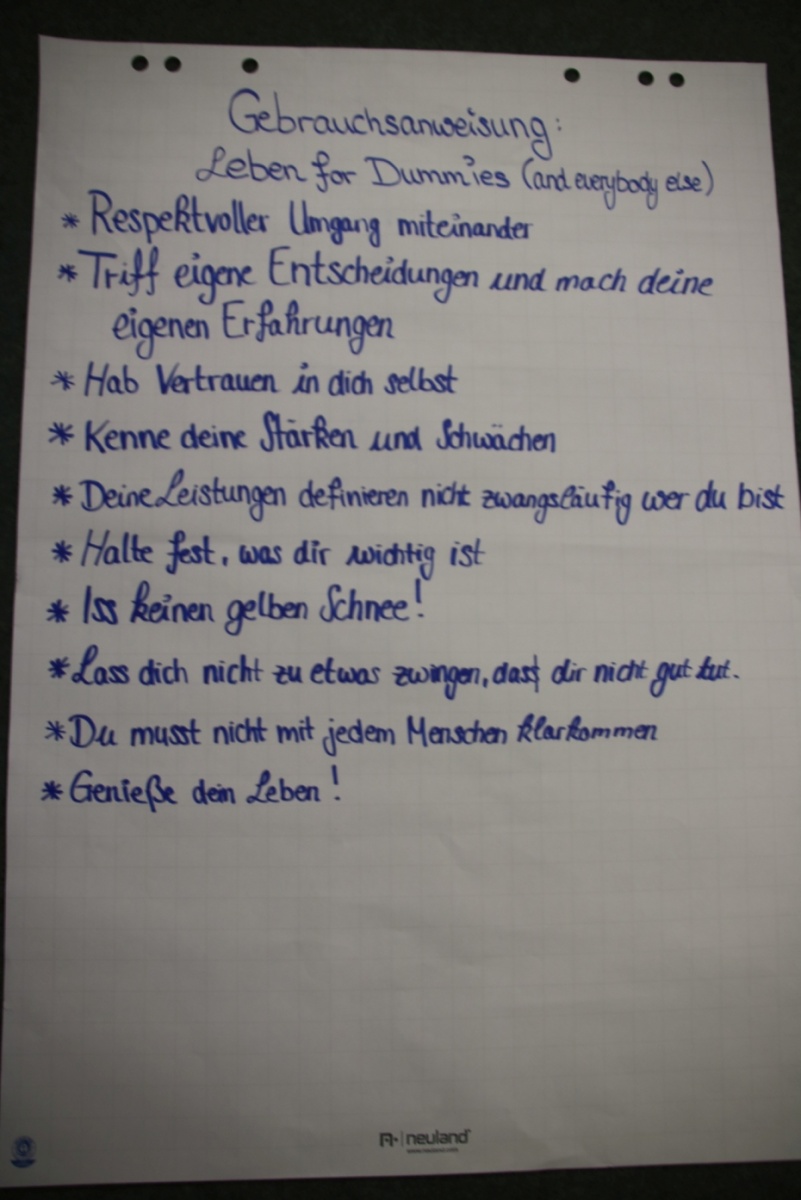 Gebrauchsanweisung:
Leben for Dummies (and everybody else)
* Respektvoller Umgang miteinander
* Triff eigene Entscheidungen und mach deine
eigenen Erfahrungen
* Hab Vertrauen in dich selbst
* Kenne deine Stärken und Schwächen
* Deine Leistungen definieren nicht zwangsläufig wer du bist
* Halte fest, was dir wichtig ist
* Iss keinen gelben Schnee!
* Lass dich nicht zu etwas zwingen, das dir nicht gut tut.
* Du musst nicht mit jedem Menschen klarkommen
* Genieße dein Leben!
neuland